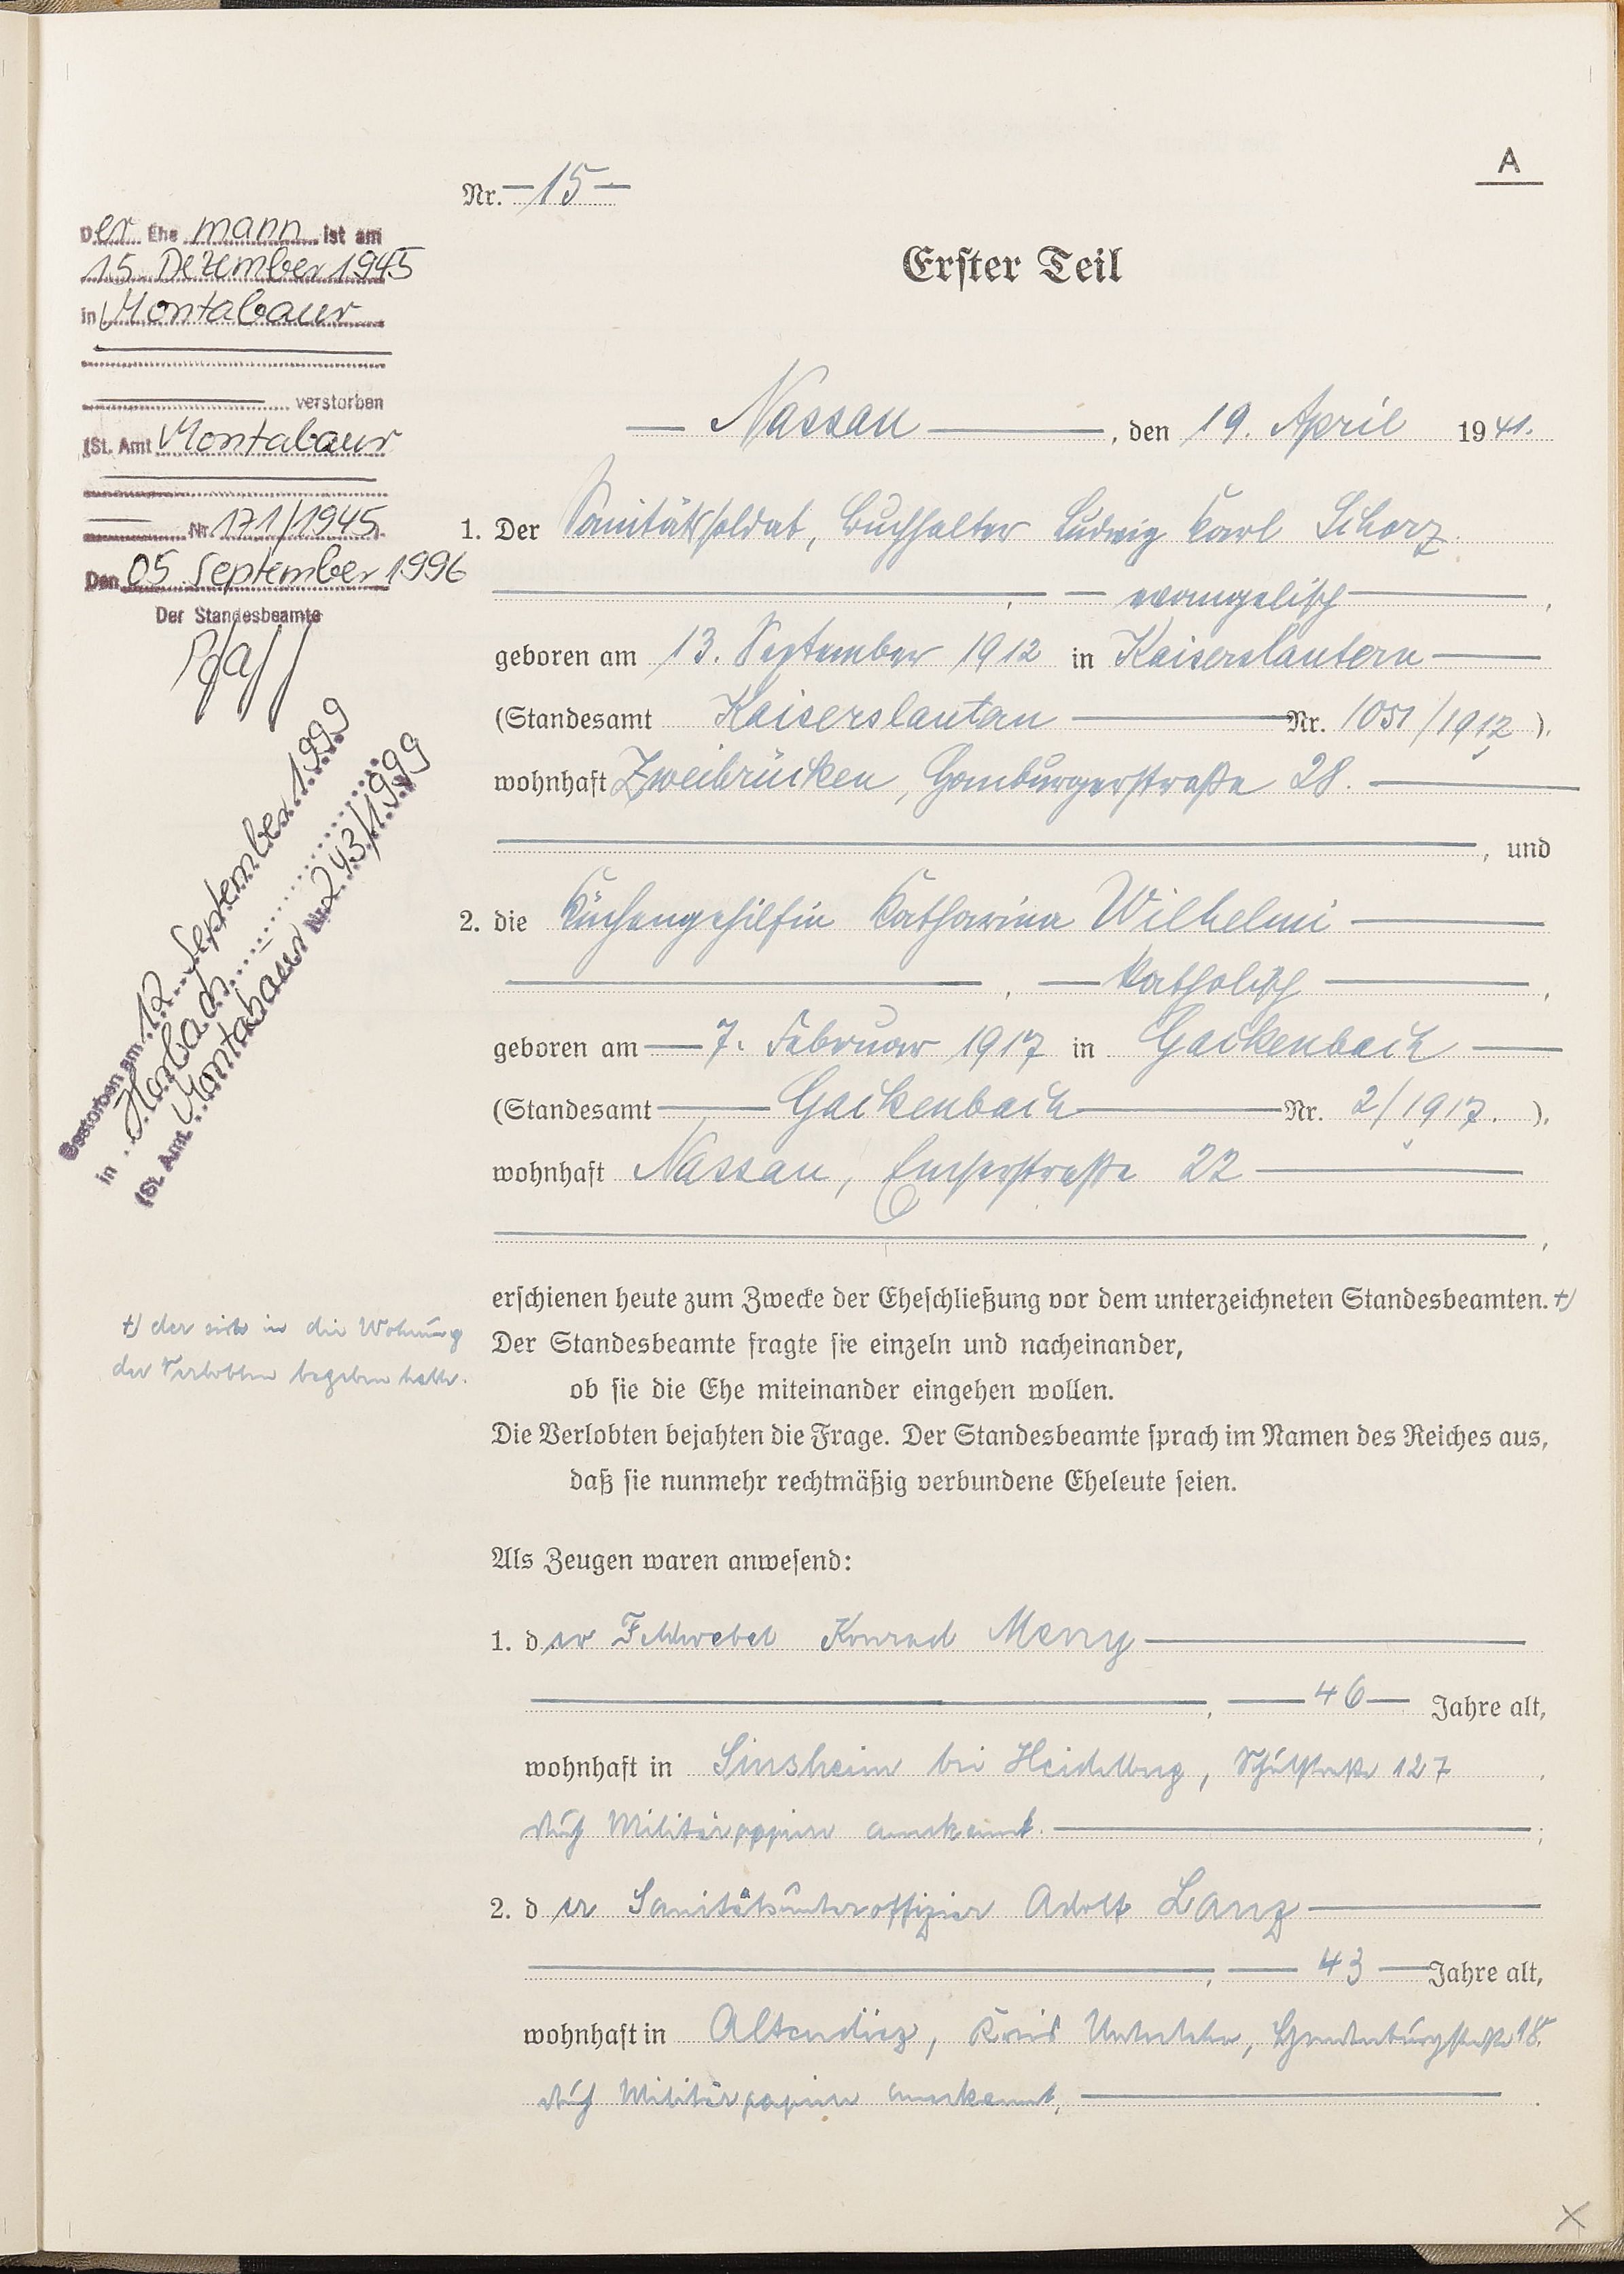 A
Nr. 15
Erster Teil
Nassau, den 19. April 1941.
1. Der Sanitätssoldat, Buchhalter Ludwig Karl Schorz
, evangelisch,
geboren am 13. September 1912 in Kaiserslautern
(Standesamt Kaiserslautern Nr. 1051/1912).
wohnhaft Zweibrücken, Homburgerstraße 28.
, und
2. die Küchengehilfin Katharina Wilhelmi
, katholisch,
geboren am 7. Februar 1917 in Gackenbach
(Standesamt Gackenbach Nr. 2/1917.).
wohnhaft Nassau, Emserstraße 22
,
erschienen heute zum Zwecke der Eheschließung vor dem unterzeichneten Standesbeamten. +)
Der Standesbeamte fragte sie einzeln und nacheinander,
ob sie die Ehe miteinander eingehen wollen.
Die Verlobten bejahten die Frage. Der Standesbeamte sprach im Namen des Reiches aus,
daß sie nunmehr rechtmäßig verbundene Eheleute seien.
Als Zeugen waren anwesend:
1. der Feldwebel Konrad Meny
, 46 Jahre alt,
wohnhaft in Sinsheim bei Heidelberg, 127,
durch Militärpapiere anerkannt.;
2. der Sanitätsunteroffizier Adolf Lanz
, 43 Jahre alt,
wohnhaft in Altendiez, Kreis Unterlahn, Hindenburgstraße 18.
durch Militärpapiere anerkannt,.
Der Ehe mann ist am
15. Dezember 1945
in Montabaur
verstorben
(St. Amt Montabaur
Nr. 171/1945.
Den 05 September 1996
Der Standesbeamte
Pfaff
Gestorben am 12. September 1999
in Horbach
(St. Amt Montabaur Nr. 243/1999
+) der sich in die Wohnung
der Verlobten begeben hatte.
X